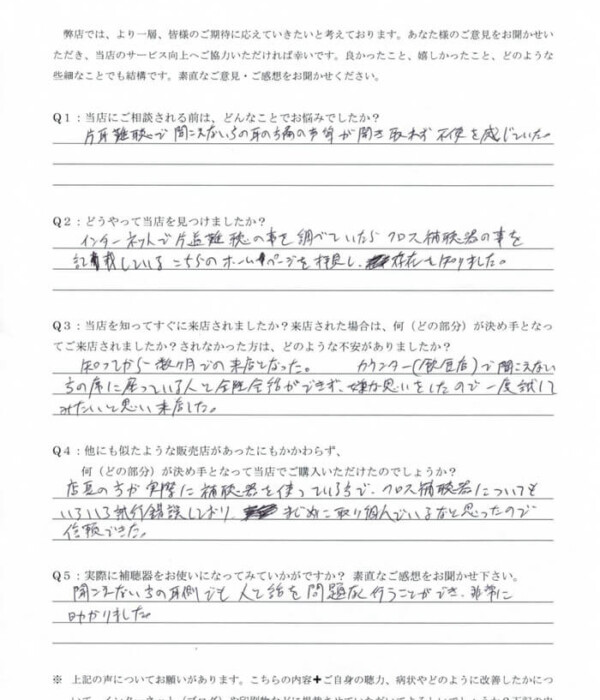 弊店では、より一層、皆様のご期待に応えていきたいと考えております。あなた様のご意見をお聞かせい
ただき、当店のサービス向上へご協力いただければ幸いです。良かったこと、嬉しかったこと、どのような
些細なことでも結構です。素直なご意見・ご感想をお聞かせください。
Q1：当店にご相談される前は、どんなことでお悩みでしたか？
片耳難聴で聞こえないちの耳の方の声が聞き取れず不便を感じていた。
Q2：どうやって当店を見つけましたか？
インターネットで片耳難聴の事を調べていたらクロス補聴器の事を
記載しているこちらのホームページを拝見し、存在を知りました。
Q3：当店を知ってすぐに来店されましたか？来店された場合は、何（どの部分）が決め手となっ
てご来店されましたか？されなかった方は、どのような不安がありましたか？
知ってから数ヶ月での来店となった。 カウンター（飲食店）で聞こえない
方の席に座っている人と全然会話ができず、嫌な思いをしたので一度試して
みたいと思い来店した。
Q4：他にも似たような販売店があったにもかかわらず、
何（どの部分）が決め手となって当店でご購入いただけたのでしょうか？
店長の方が実際に補聴器を使っている方で、クロス補聴器についても
いろいろ試行錯誤しており、まじめに取り組んでいるなと思ったので
信頼できた。
Q5：実際に補聴器をお使いになってみていかがですか？ 素直なご感想をお聞かせ下さい。
聞こえない方の耳側でも人と話を問題なく行うことができ、非常に
助かりました。
※ 上記の声についてお願いがあります。こちらの内容+ご自身の聴力、病状やどのように改善したかにつ